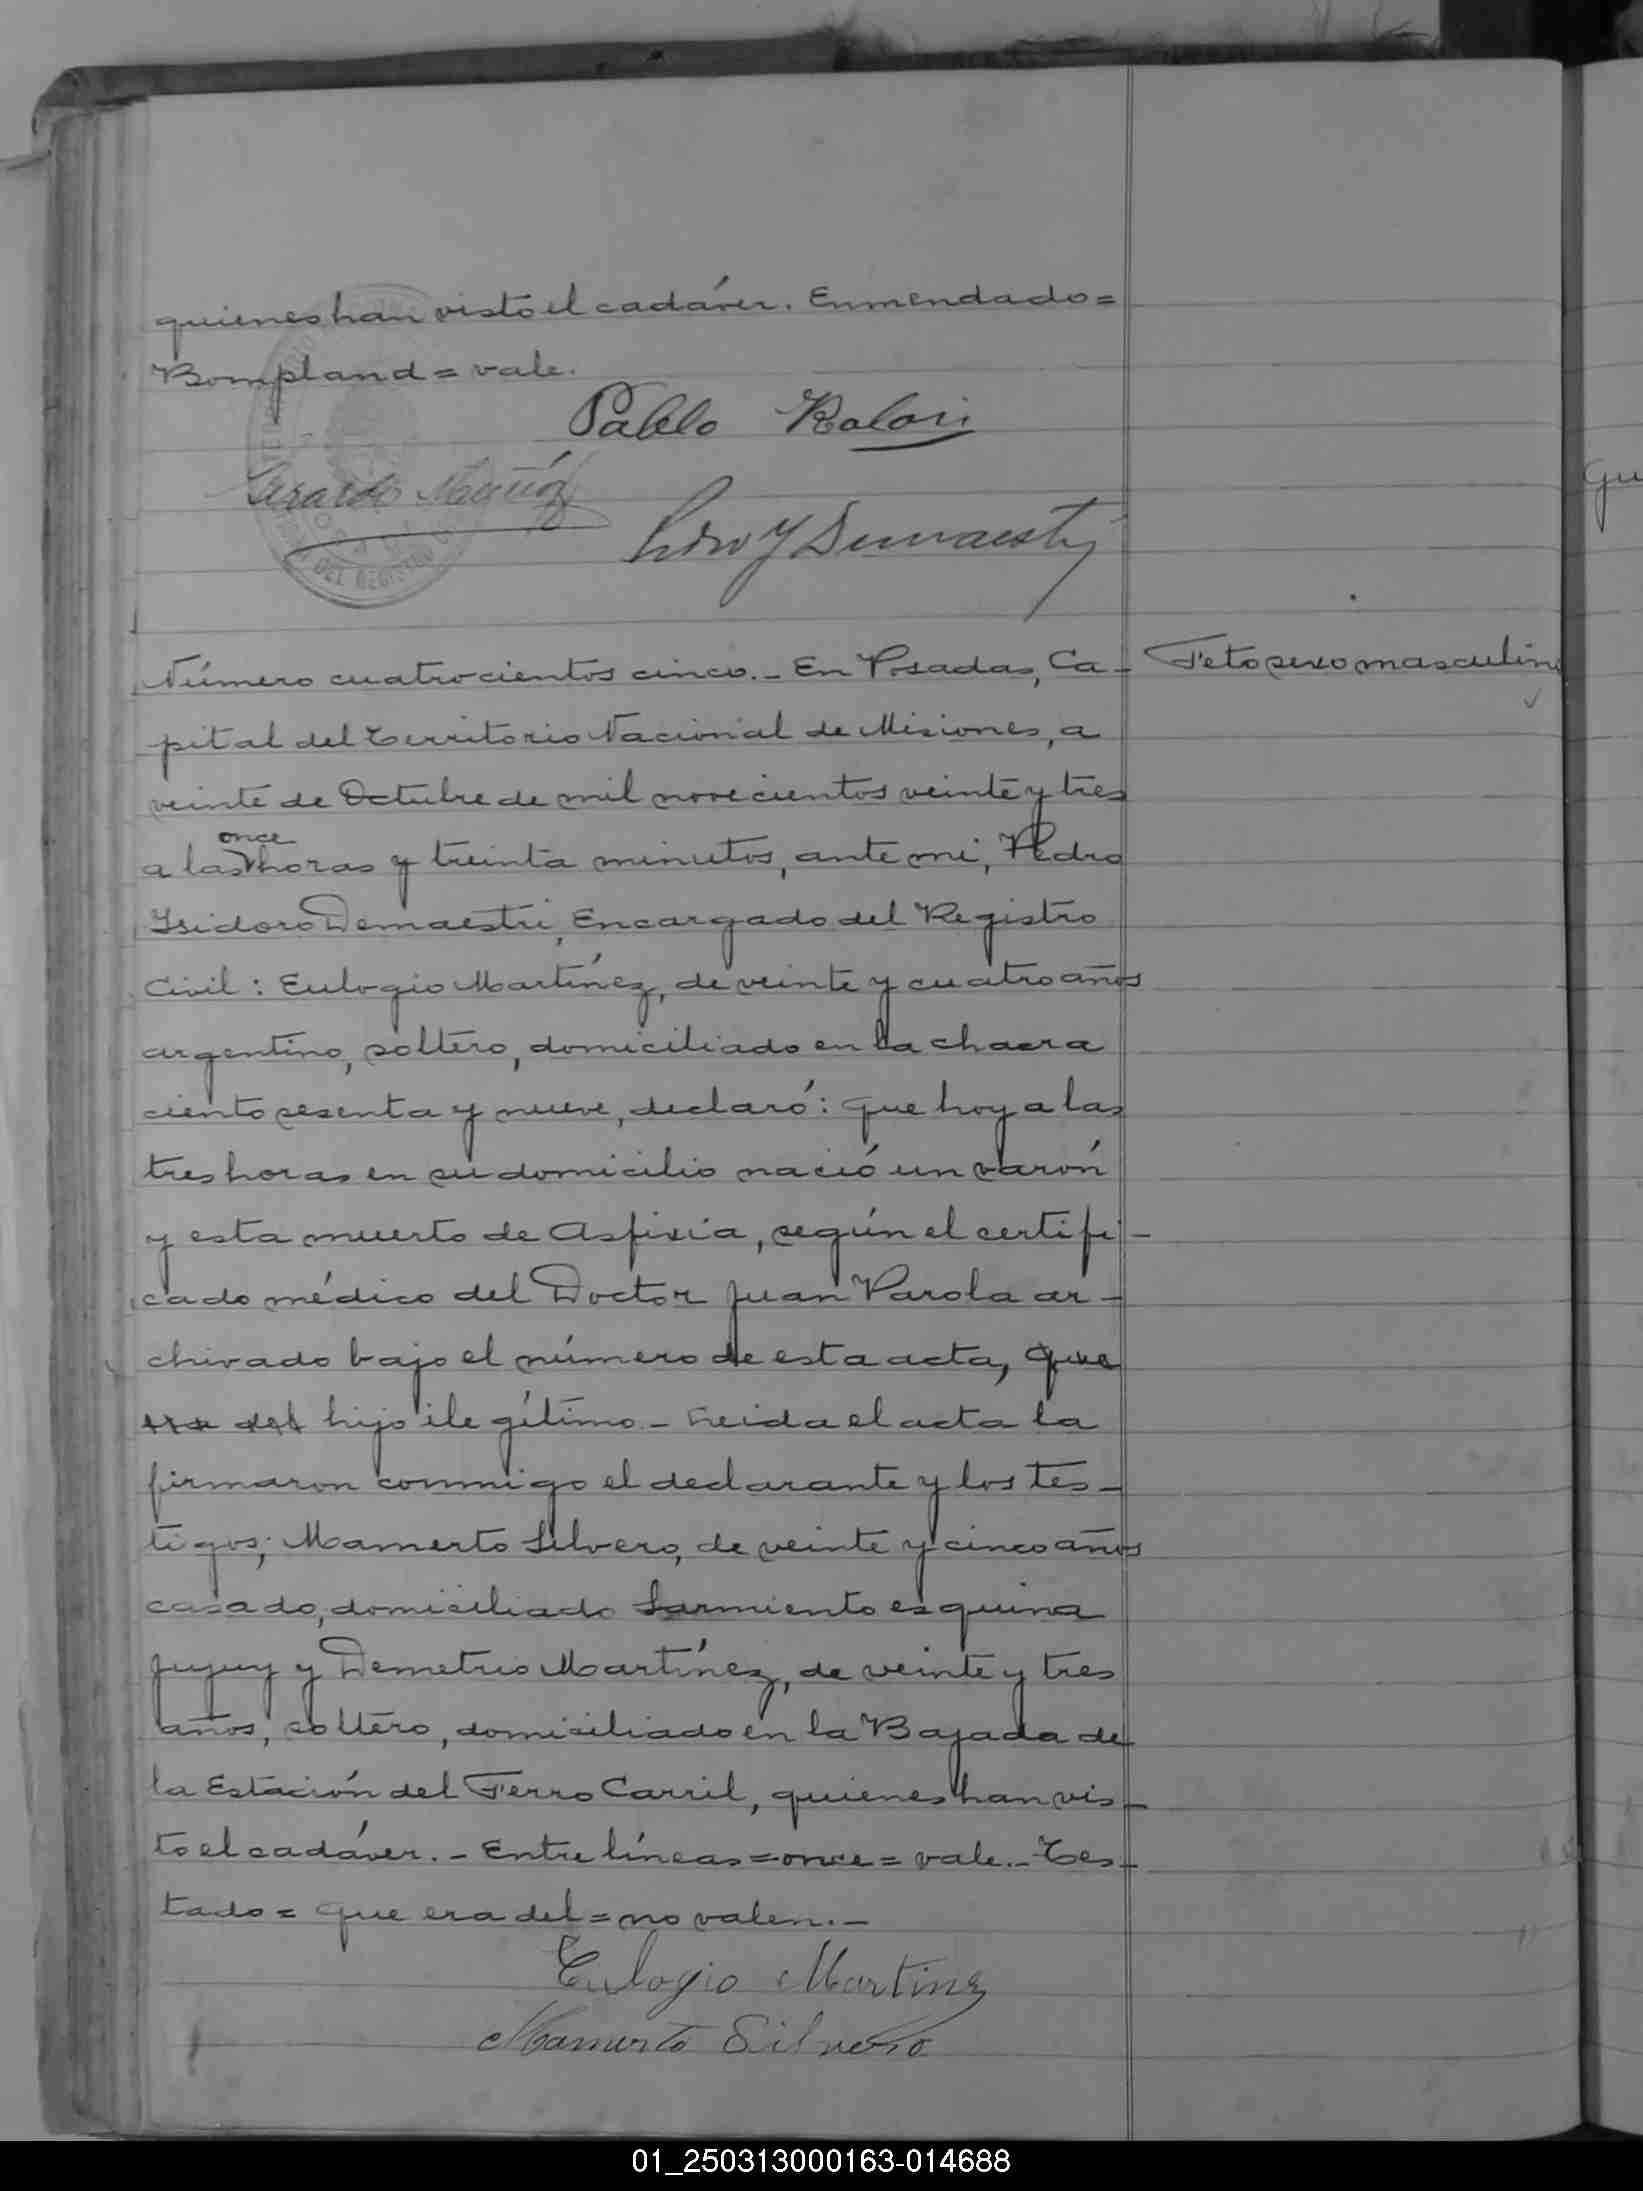 quienes han visto el cadáver. Enmendado=
Bompland = vale.
Pablo Rolon
Gerardo Muñóz
Número cuatrocientos cinco.- En Posadas, Ca-
Feto sexo masculino
pital del Territorio Nacional de Misiones, a
veinte de Octubre de mil novecientos veinte y tres
once
a las horas y treinta minutos, ante mi, Pedro
Isidoro Demaestri, Encargado del Registro
Civil: Eulogio Martínez, de veinte y cuatro años
argentino, soltero, domiciliado en la chacra
ciento sesenta y nueve, declaró: que hoy a las
tres horas en su domicilio nació un varón
y esta muerto de Asfixia, según el certifi-
cado médico del Doctor Juan Parola ar-
chivado bajo el número de esta acta, que
era del hijo ilegítimo - Leida el acta la
firmaron conmigo el declarante y los tes-
tigos; Mamerto Silvero, de veinte y cinco años
casado, domiciliado Sarmiento esquina
Jujuy y Demetrio Martínez, de veinte y tres
años, soltero, domiciliado en la Bajada de
la Estación del Ferro Carril, quienes han vis-
to el cadáver. - Entre líneas = once = vale.- Tes-
tado = que era del = no valen.-
Eulogio Martinez
Mamerto Silvero
01_250313000163-014688